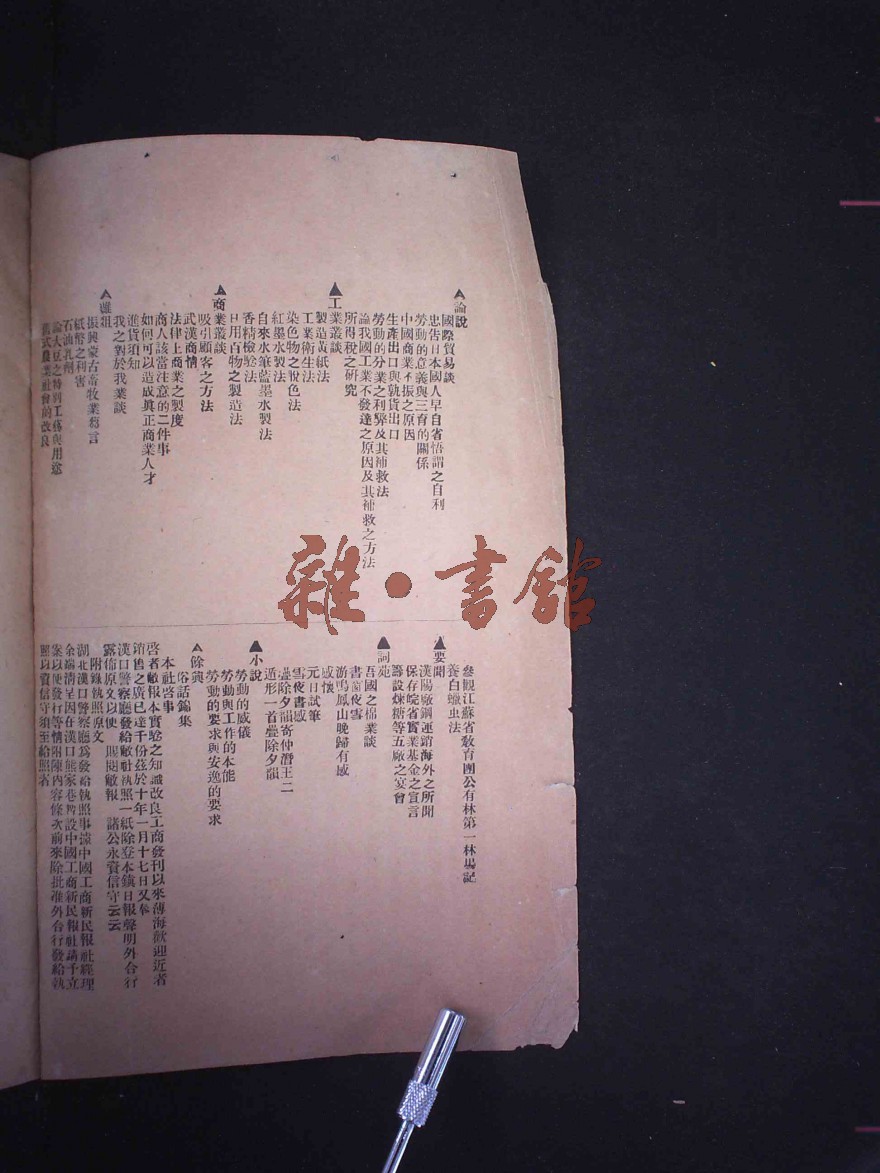 ▲論說
國際貿易談
忠告日本國人早自省悟謂之自利
勞動的意義與三育的關係
中國商業不振之原因
生產出口與孰貨出口
勞動的分業之利弊及其補救法
論我國工業不發達之原因及其補救之方法
所得稅之研究
▲工業叢談
製造黃紙法
工業衛生法
染色物之脫色法
紅墨水製法
自來水筆藍墨水製法
香精檢騐法
日用百物之製造法
▲商業叢談
吸引顧客之方法
武漢商情
法律上商業之製度
商人該當注意的二件事
如何可以造成眞正商業人才
進貨須知
我之對於我業談
▲雜俎
振興蒙古畜牧業芻言
紙幣之利害
石油乳劑
論大豆之特別工藝與用途
舊式農業社會的改良
參觀江蘇省敎育團公有林第一林塲記
養白蠟虫法
▲要聞
漢陽廠鋼運銷海外之所聞
保存皖省實業基金之宣言
籌設煉糖等五廠之宴會
▲詞苑
吾國之棉業談
書窗夜雪
游鳴鳳山晚歸有感
感懷
元日試筆
雪夜書感
疊除夕韻寄仲潛王二
遁形一首疊除夕韻
▲小說
勞動的威儀
勞動與工作的本能
勞動的要求與安逸的要求
▲餘興
俗話錦集
本社啓事
啓者敝報本實騐之知識改良工商發刊以來薄海歡迎近者
銷售之廣已達千份茲於十年一月十七日又奉
漢口警察廳發給敝社執照一紙除登本鎭日報聲明外合行
露佈原文以便 賜閱敝報 諸公永資信守云云
附錄執照原文
湖北漢口警察廳爲發給執照事據中國工商新民報社經理
余端清呈因在漢口熊家巷 設中國工商新民報社請予立
案以便發行等情附陳內容條次前來除批准外合行發給執
照以資信守須至給照者
雜·書館